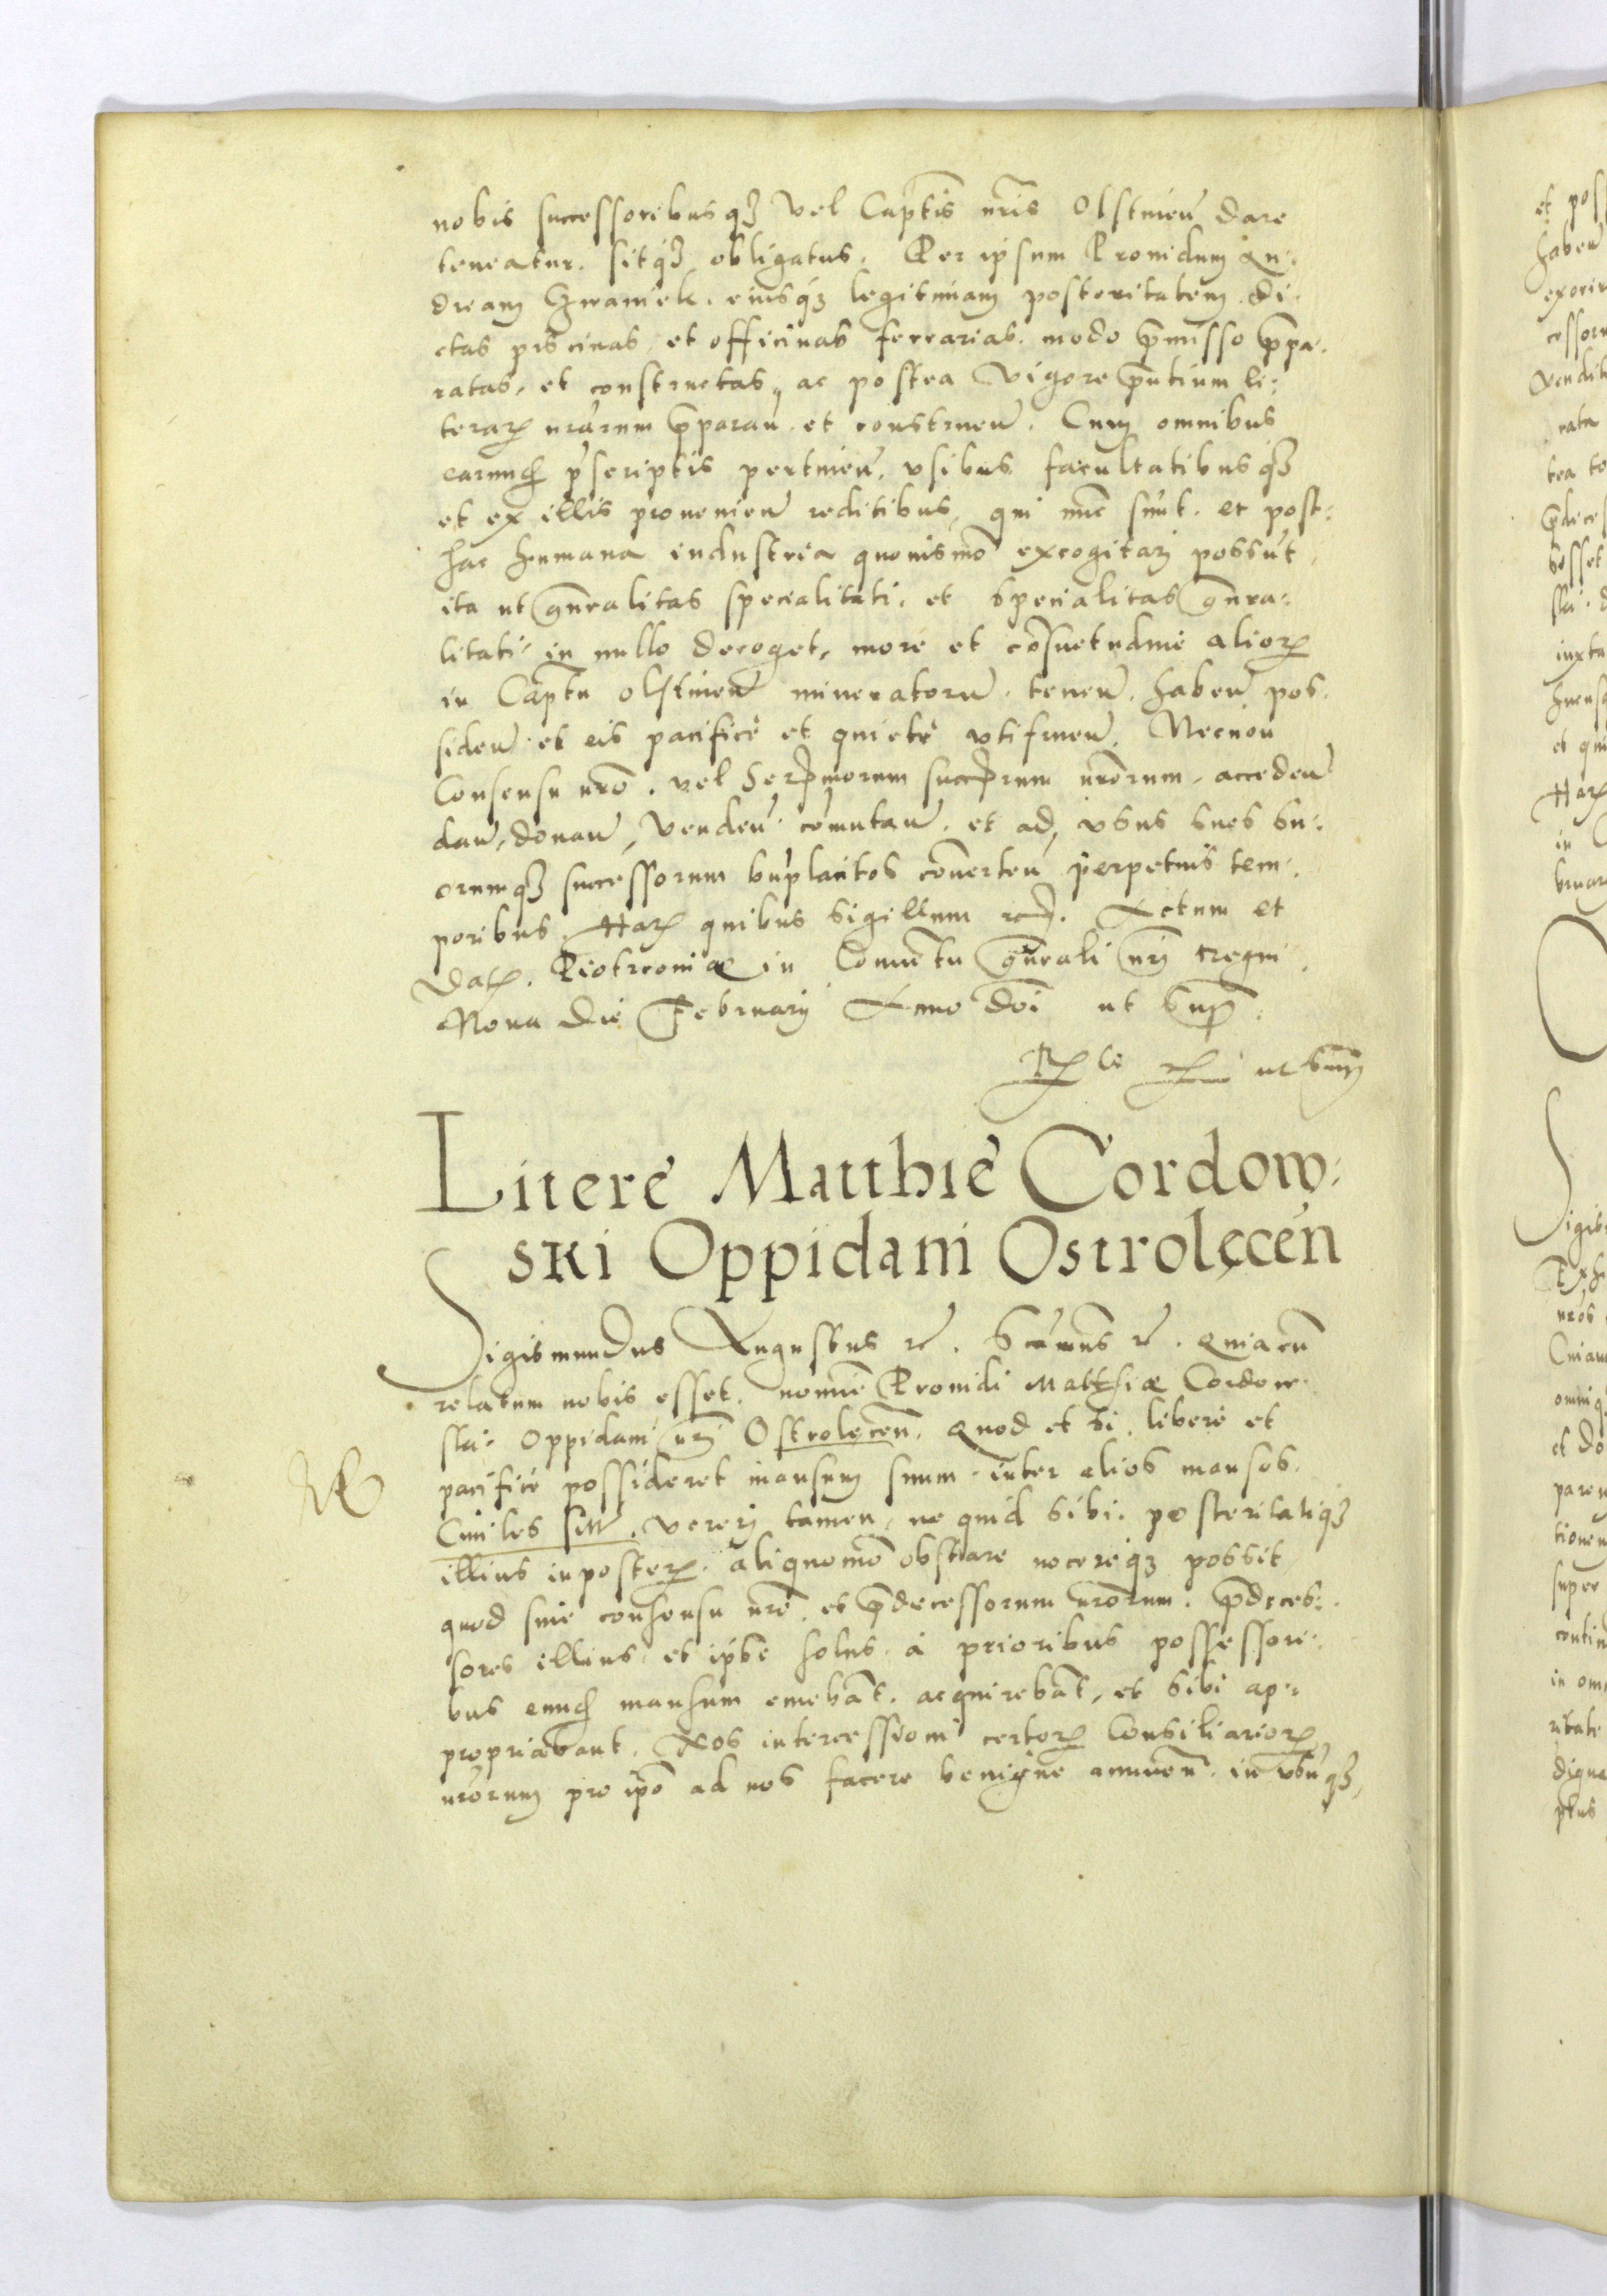 nobis successoribusq₃ vel Captīs nrīs Olstinen̄ dare
teneatur. sitq₃ obligatus. Per ipsum Prouidum An:
dream Gnamek. eiusq₃ legitimam posteritatem. di
ctas piscinas, et officinas ferrarias. modo p̄misso p̄pa:
ratas, et constructas, ac postea vigore p̄ntium li:
terarꝝ nr̄arum p̄paran̄. et construen̄. Cum omnibus
earund p̄scriptis pertinen̄. vsibus facultatibusq₃
et ex illis prouenien̄ reditibus, qui nūc sūnt. et post:
hac humana industria quouismō excogitari possūt,
ita ut gn̄ralitas specialitati, et specialitas gn̄ra:
litati in nullo deroget, more et cōsuetudine aliorꝝ
in Captū olstinen̄ mineratorū. tenen̄. haben̄ pos:
siden̄. et eis pacifice et quiete vtifruen̄. Necnon
Consensu nrō. vel Ser̄morum succ̄rum nrōrum. acceden̄
dan̄, donan̄, venden̄. cōmutan̄. et ad vsus suos su:
orumq₃ successorum bn̄placitos conuerten̄ perpetuis tem:
poribus. Harꝝ quibus sigillum rc̄. Actum et
Datꝝ. Piotrcouiæ in Conuentu gn̄rali nrī regni.
Nona die Februarij Anno doī ut supꝝ.
ut supꝝ
Litere Matthie Cordow:
ski Oppidani Ostrolęcen̄
Sigismundus Augustus rc̄. Scimus rc̄. Quia cū
relatum nobis esset. nomine Prouidi Matthiæ Cordow
ski. Oppidani nrī Ostrolęcen̄. Quod et si. libere et
pacifice possideret mansum suum. inter alios mansos.
Ciuiles sitū. vereri tamen, ne quid sibi. posteritatiq₃
illius inposterꝝ. aliquomō obstare nocereq₃ possit,
quod sine consensu nrō. et p̄decessorum nrōrum. p̄deces:
sores illius. et ipse solus. à prioribus possessori
bus eund mansum emebāt. acquirebāt, et sibi ap:
propriabant. Nos intercessioni certorꝝ Consiliariorꝝ
nrōrum pro ip̄o ad nos facere benigne annuen̄. in